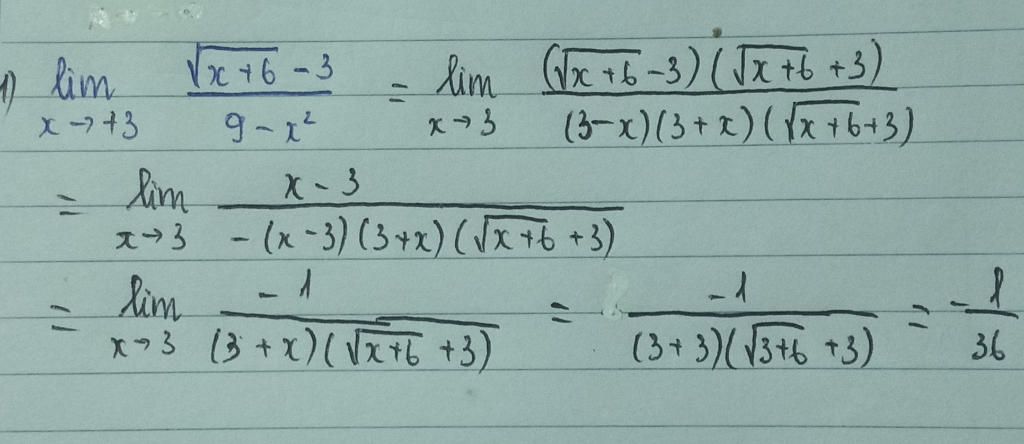 1) lim x→+3 (√(x+6) - 3)/(9 - x²) = lim x→3 ((√(x+6) - 3)(√(x+6) + 3))/((3-x)(3+x)(√(x+6)+3))
= lim x→3 (x - 3)/(-(x-3)(3+x)(√(x+6) + 3))
= lim x→3 (-1)/((3+x)(√(x+6) + 3)) = (-1)/((3+3)(√(3+6) + 3)) = -1/36